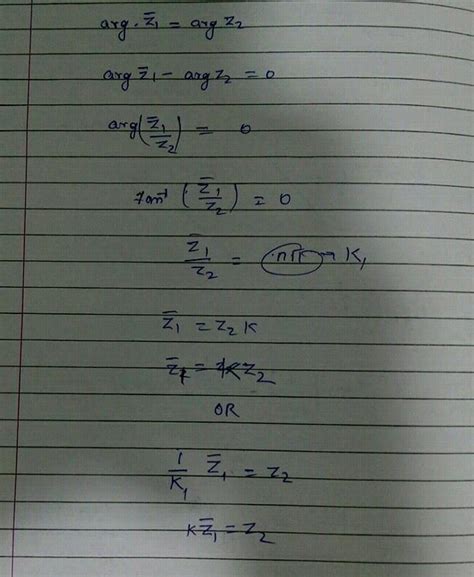 arg. z̄₁ = arg z₂
arg z̄₁ − arg z₂ = 0
arg(z̄₁/z₂) = 0
Tan⁻¹(z̄₁/z₂) = 0
z̄₁/z₂ = nπ → K₁
z̄₁ = z₂ K
z̄₁ = K z₂
OR
1/K₁ z̄₁ = z₂
K z̄₁ = z₂